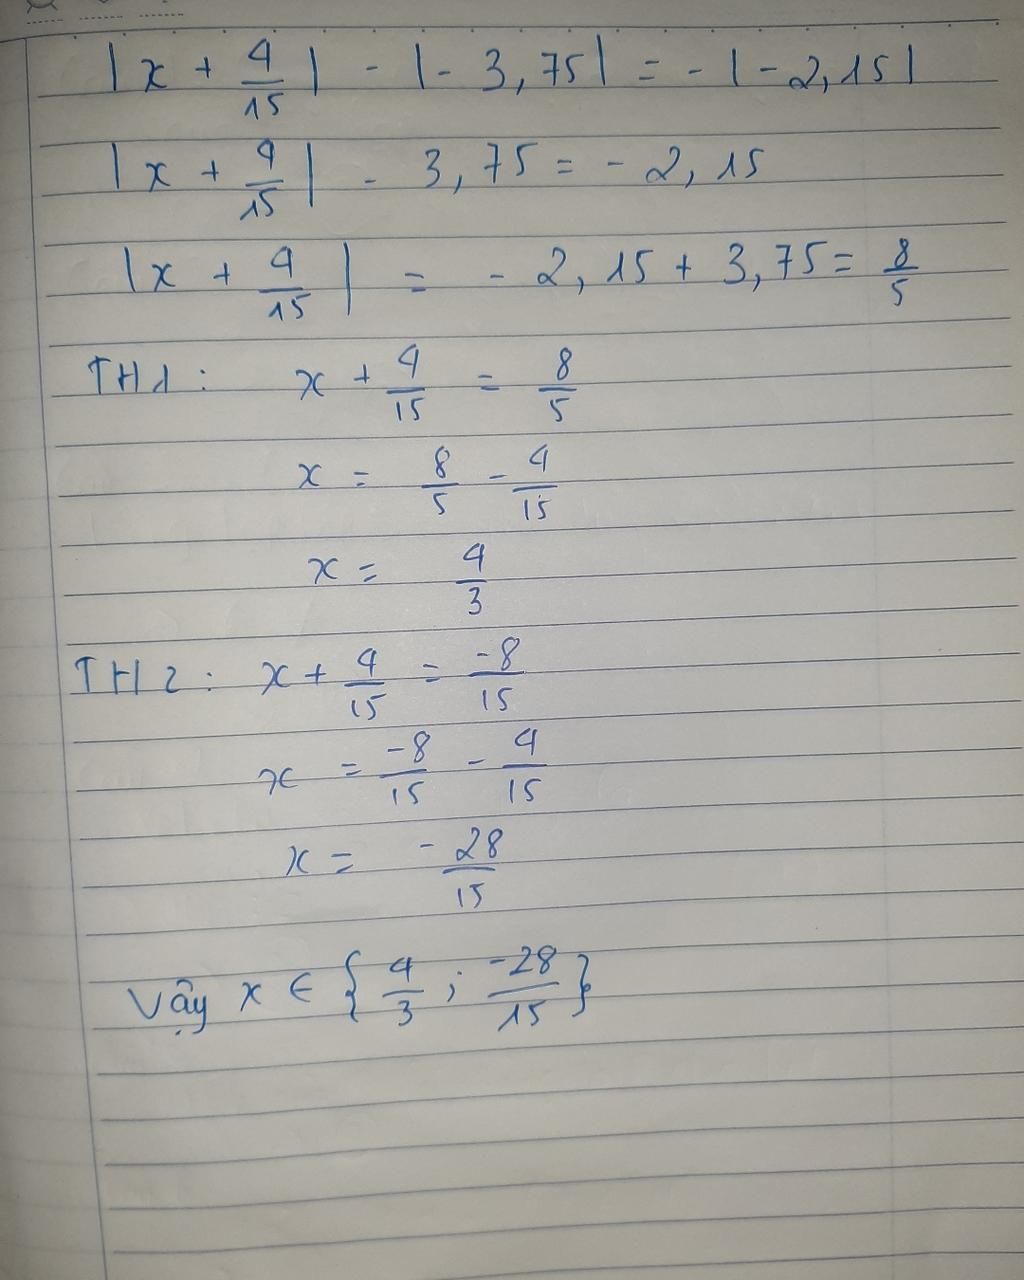 |x + 4/15| - |- 3,75| = - |- 2,15|
|x + 4/15| - 3,75 = - 2,15
|x + 4/15| = - 2,15 + 3,75 = 8/5
TH1: x + 4/15 = 8/5
x = 8/5 - 4/15
x = 4/3
TH2: x + 4/15 = -8/15
x = -8/15 - 4/15
x = - 28/15
Vậy x ∈ {4/3 ; -28/15}